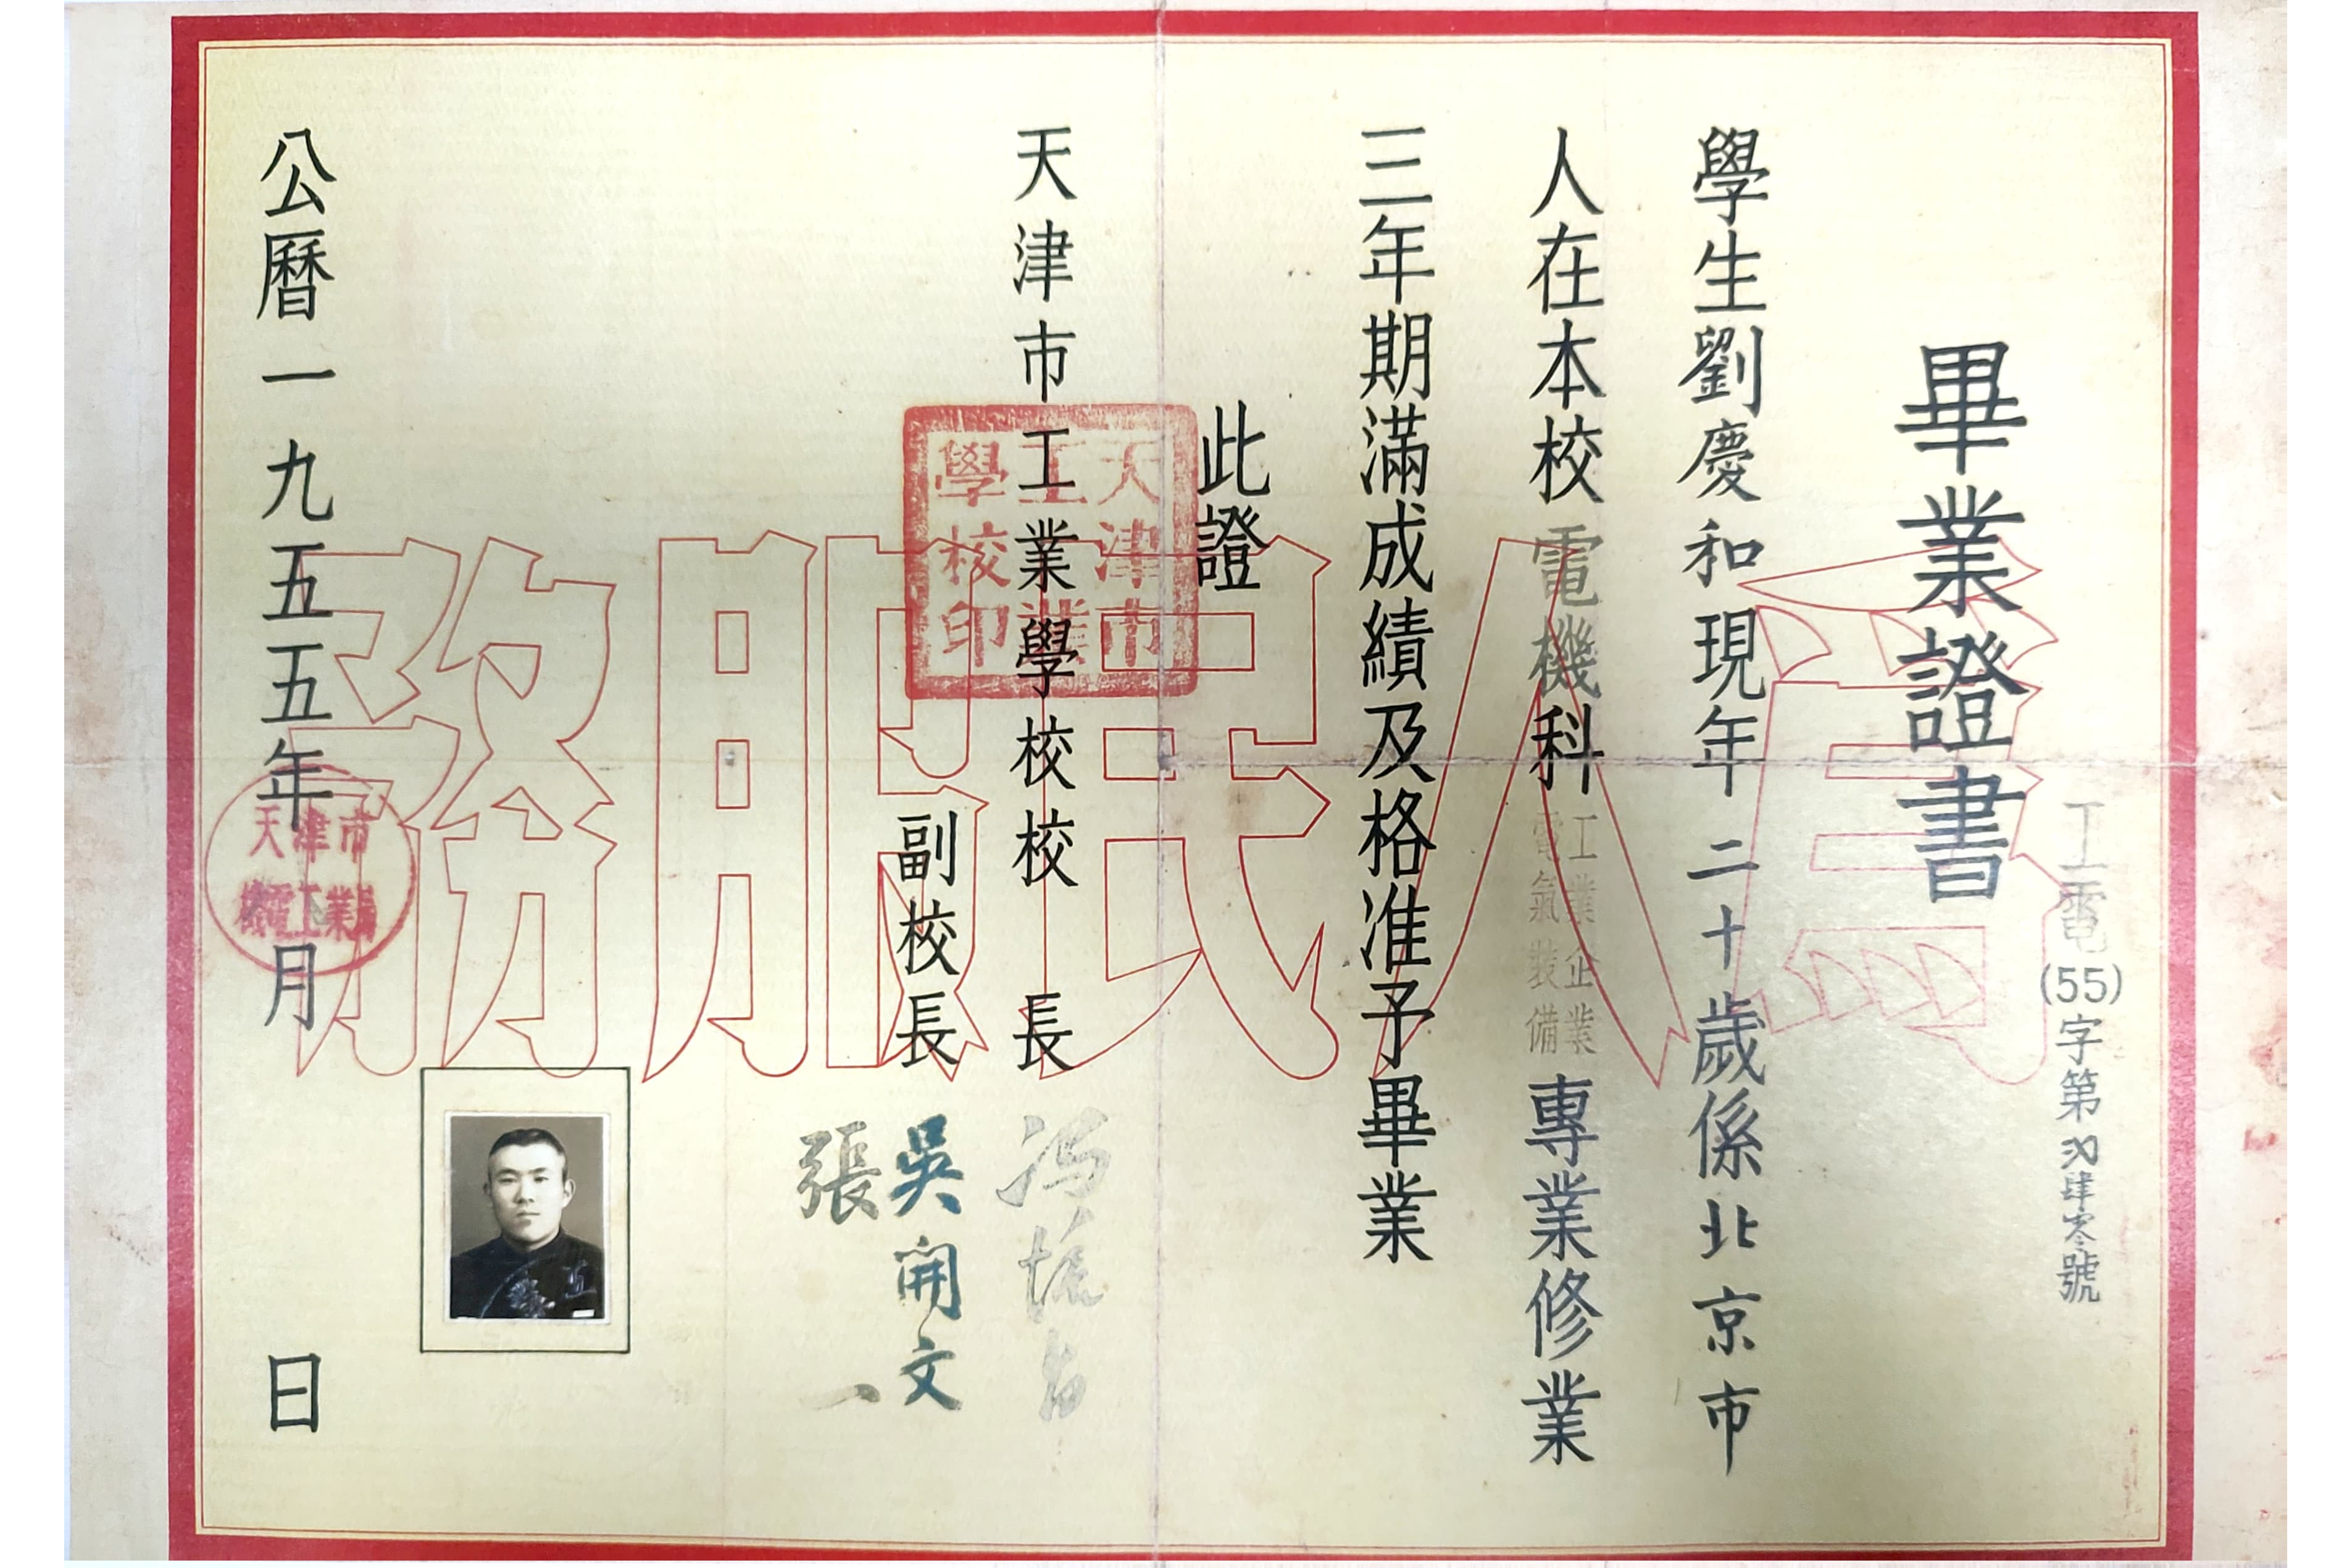 畢業證書
工電(55)字第 肆零號
學生劉慶和現年二十歲係北京市
人在本校電機科工業企業電氣裝備專業修業
三年期滿成績及格准予畢業
此證
天津市工業學校校長
副校長 吳開文
張一
公曆一九五五年 月 日
為人民服務
天津市工業學校印
天津市
機電工業局